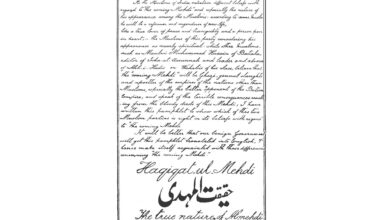 As the Muslims of India entertain different beliefs with
regard to the coming Mehdi and especially the nature of
his appearance among the Muslims, according to some he is
to be a reformer and regenerator of new life,
like a true lover of peace and loving only and a poor per
son in heart - the Muslims of this party considering his
appearance as merely spiritual. While other Muslims,
such as Moulvi Mohammed Hussain of Batala
editor of Isha-a-ul Sunnah and leader and advocate
of Ahl-i-Hadis or Wahabis of his class believe that
the coming Mehdi will be Ghazi general slaughterer
and spoiler of the empires of the nations other than
Muslims, especially the bitter opponent of the British
Empire, and speak of the terrible consequences result
ing from the bloody deeds of this Mehdi; I have
written this pamphlet to show which of these two
Muslim parties is right in its beliefs with regard
to the coming Mehdi.
It will be better that our benign Government
will get this pamphlet translated into English, &
hence make itself acquainted with these differences
concerning the coming Mehdi.
Haqiqat ul Mehdi
حقیقت المہدی
The true nature of Almehdi